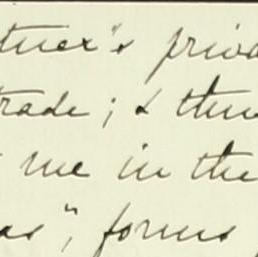 tner's priva
trade; & thus
me in the
as", forms